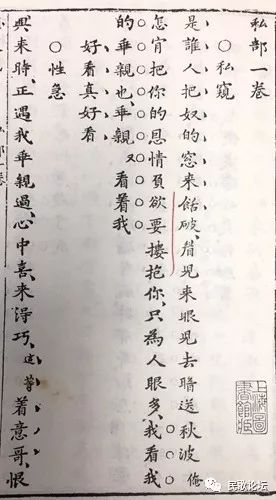 私部一卷
○私窺
是誰人把奴的窓來餂破、眉兒來眼兒去暗送秋波俺
怎肯把你的恩情負欲要摟抱你、只為人眼多、我看我
的乖親也、乖親又看着我
好看真好看
○性急
興来時、正遇我乖親過、心中喜、来淂巧、這等着意哥、恨
上海圖書館藏
民歌论坛